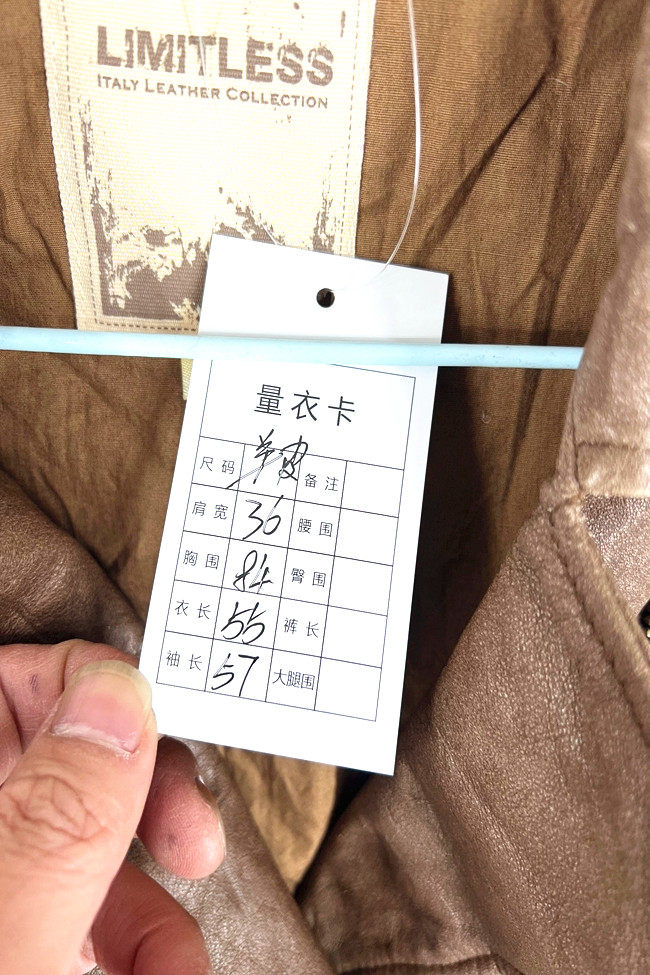 LIMITLESS
ITALY LEATHER COLLECTION
量衣卡
尺码 羊皮 备注
肩宽 36 腰围
胸围 84 臀围
衣长 55 裤长
袖长 57 大腿围